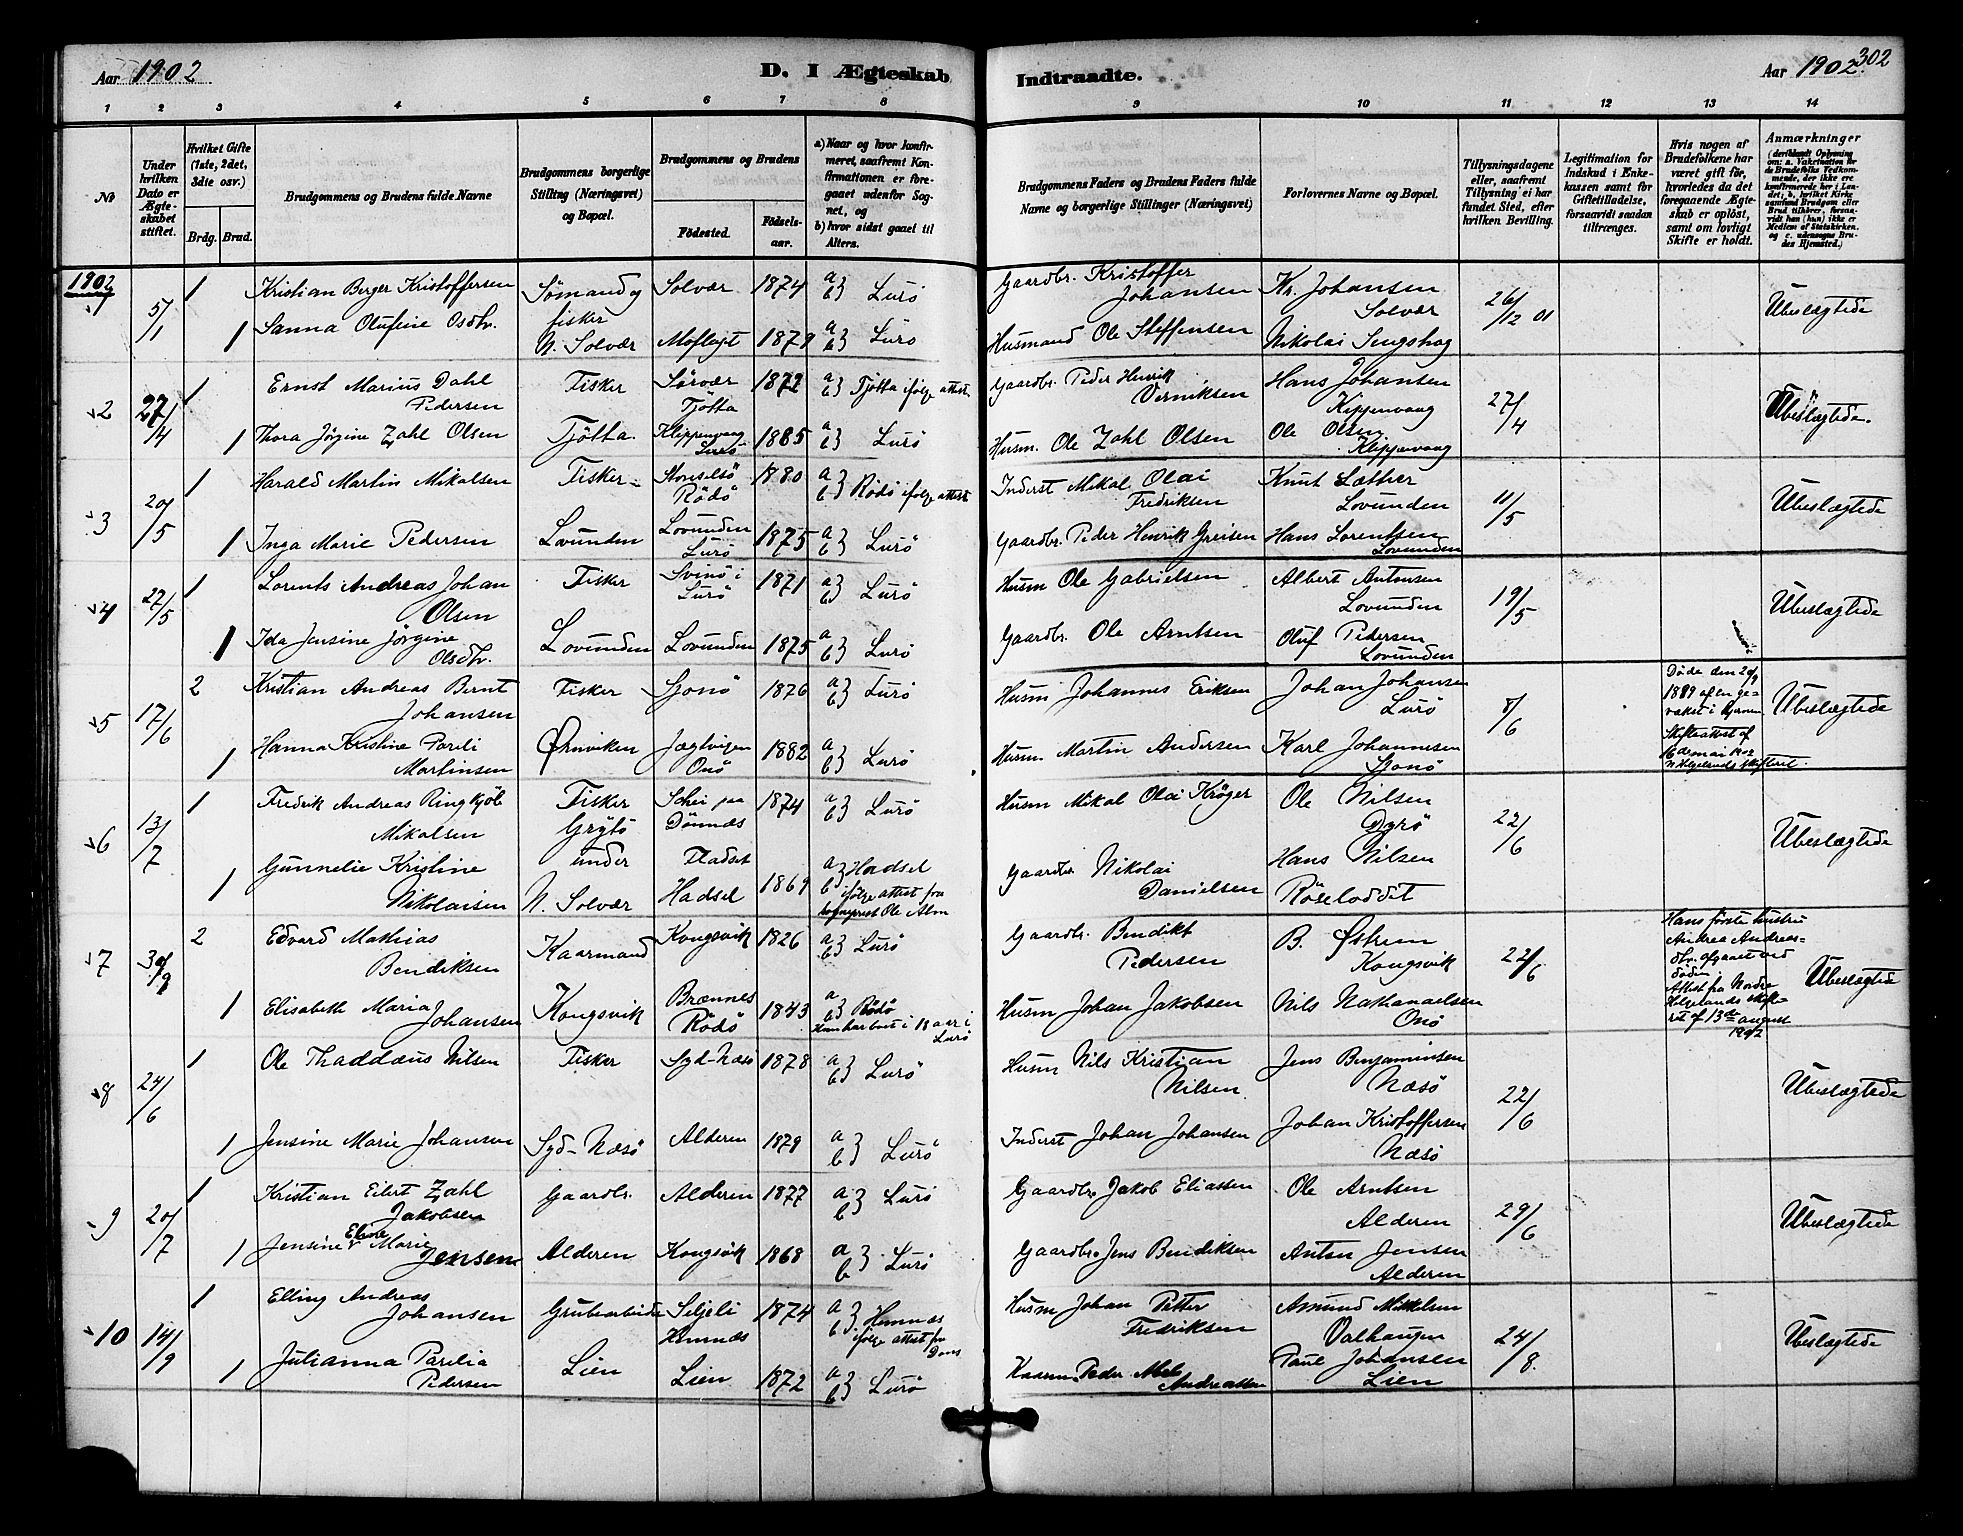 Aar 1902
D. I Ægteskab
1 2 3 4 5 6 7 8
№
Under hvilken Dato er Ægteskabet stiftet.
Hvilket Gifte (1ste, 2det, 3die osv.)
Brdg. Brud.
Brudgommens og Brudens fulde Navne
Brudgommens borgerlige Stilling (Næringsvei) og Bopæl.
Brudgommens og Brudens
Födested. Födselsaar.
a) Naar og hvor konfirmeret, saafremt Konfirmationen er foregaaet udenfor Sognet, og
b) hvor sidst gaaet til Alters.
1902
1 5/1 1 Kristian Berger Kristoffersen Sömand og fisker Solvær 1874 a b} Lurö
1 Sanna Olufine Osdtr. N. Solvær Moflagt 1879 a b} Lurö
2 27/4 1 Ernst Marius Dahl Pedersen Fisker Sörvær Tjötta 1872 a b} Tjötta ifølge attest
1 Thora Jörgine Zahl Olsen Tjötta. Klippenvaag Lurö 1885 a b} Lurö
3 20/5 1 Harald Martin Mikalsen Fisker Storselsö Rödö 1880 a b} Rödö ifølge attest
1 Inga Marie Pedersen Lovunden Lovunden Lurö 1875 a b} Lurö
4 27/5 1 Lorents Andreas Johan Olsen Fisker Svinö i Lurö 1871 a b} Lurö
1 Ida Jensine Jörgine Olsdtr. Lovunden Lovunden 1875 a b} Lurö
5 17/6 2 Kristian Andreas Bernt Johansen Fisker Sjonö 1876 a b} Lurö
1 Hanna Kristine Pareli Martinsen Ørnviken Jægtvigen Onö 1882 a b} Lurö
6 13/7 1 Fredrik Andreas Ringkjöb Mikalsen Fisker Grytö under Schei paa Dönnæs 1874 a b} Lurö
1 Gunnelie Kristine Nikolaisen N. Solvær Fladset Hadsel 1869 a b} Hadsel ifølge attest fra sogneprest Ole Alm
7 30/9 2 Edvard Mathias Bendiksen Kaarmand Kongsvik 1826 a b} Lurö
1 Elisabeth Maria Johansen Kongsvik Brænnes Rödö 1843 a b} Rödö Hun har boet i 18 aar i Lurö
8 24/6 1 Ole Thaddæus Nilsen Fisker Syd-Næsö 1878 a b} Lurö
1 Jensine Marie Johansen Syd-Næsö Alderen 1879 a b} Lurö
9 20/7 1 Kristian Eilert Zahl Jakobsen Gaardbr. Alderen 1877 a b} Lurö
1 Jensine Elene Marie Jensen Alderen Kongsvik 1868 a b} Lurö
10 14/9 1 Elling Andreas Johansen Grubearbeider Seljeli Hemnæs 1874 a b} Hemnæs ifølge attest fra
1 Julianna Parelia Pedersen Lien Lien 1872 a b} Lurö
Indtraadte.
Aar 1902. 302
9 10 11 12 13 14
Brudgommens Faders og Brudens Faders fulde Navne og borgerlige Stillinger (Næringsvei)
Forlovernes Navne og Bopæl.
Tillysningsdagene eller, saafremt Tillysning ei har fundet Sted, efter hvilken Bevilling.
Legitimation for Indskud i Enkekassen samt for Giftetilladelse, forsaavidt saadan tiltrænges.
Hvis nogen af Brudefolkene har været gift før, hvorledes da det foregaaende Ægteskab er oplöst, samt om lovligt Skifte er holdt.
Anmærkninger
(deriblandt Oplysning om: a. Vakcination for de Brudefolks Vedkommende, der ikke ere konfirmerede her i Landet; b. hvilket Kirkesamfund Brudgom eller Brud tilhörer, forsaavidt han (hun) ikke er Medlem af Statskirken, og c. udensogns Brudes Hjemsted.)
Gaardbr. Kristoffer Johansen Kr. Johansen Solvær 26/12 01 Ubeslægtede
Husmand Ole Steffensen Nikolai
Gaardbr. Peder Henrik Verniksen Hans Johansen Kippenvaag 27/4 Ubeslægtede.
Husm. Ole Zahl Olsen Ole Olsen Klippenvaag
Inderst Mikal Olai Fredriksen Knut Lather Lovunden 11/5 Ubeslægtede
Gaardbr. Peder Henrik Greisen Hans Lorentsen Lovunden
Husm Ole Gabrielsen Albert Antonsen Lovunden 19/5 Ubeslægtede
Gaardbr. Ole Arntsen Oluf Pedersen Lovunden
Husm Johannes Eriksen Johan Johansen Lurö 8/6 Døde den 1889 af en Skifteattest af 16de mai 1902 Ubeslægtede
Husm. Martin Andersen Karl Johannesen Sjonö
Husm Mikal Olai Kröger Ole Nilsen Dyrö 22/6 Ubeslægtede
Gaardbr Nikolai Danielsen Hans Nilsen Röseloddet
Gaardbr. Bendikt Pedersen B. Østrem Kongsvik 22/6 Hans første hustru Andrea Andreasdtr. afgaaet ved døden Attest fra Nordre Helgelands skifteret af 13de august 1902 Ubeslægtede
Husm Johan Jakobsen Nils Nathanaelsen Onö
Husm Nils Kristian Nilsen Jens Benjaminsen Næsö 22/6 Ubeslægtede
Inderst Johan Johansen Johan Kristoffersen Næsö
Gaardbr. Jakob Eliassen Ole Arntsen Alderen 29/6 Ubeslægtede
Gaardbr. Jens Bendiksen Anton Jensen Alderen
Husm Johan Petter Fredriksen Amund Mikkelsen Valhaugen 24/8. Ubeslægtede
Kaarm. Peder Andreassen Paul Johansen Lien